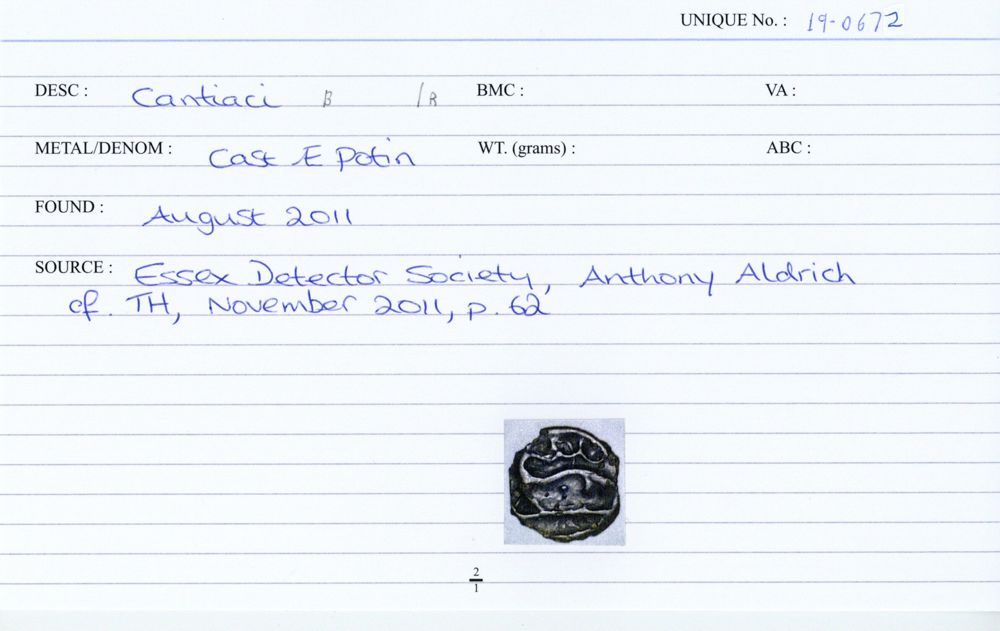 UNIQUE No. : 19-0672
DESC : Cantiaci B /R BMC : VA :
METAL/DENOM : Cast Æ Potin WT. (grams) : ABC :
FOUND : August 2011
SOURCE : Essex Detector Society, Anthony Aldrich
cf. TH, November 2011, p. 62
2
1